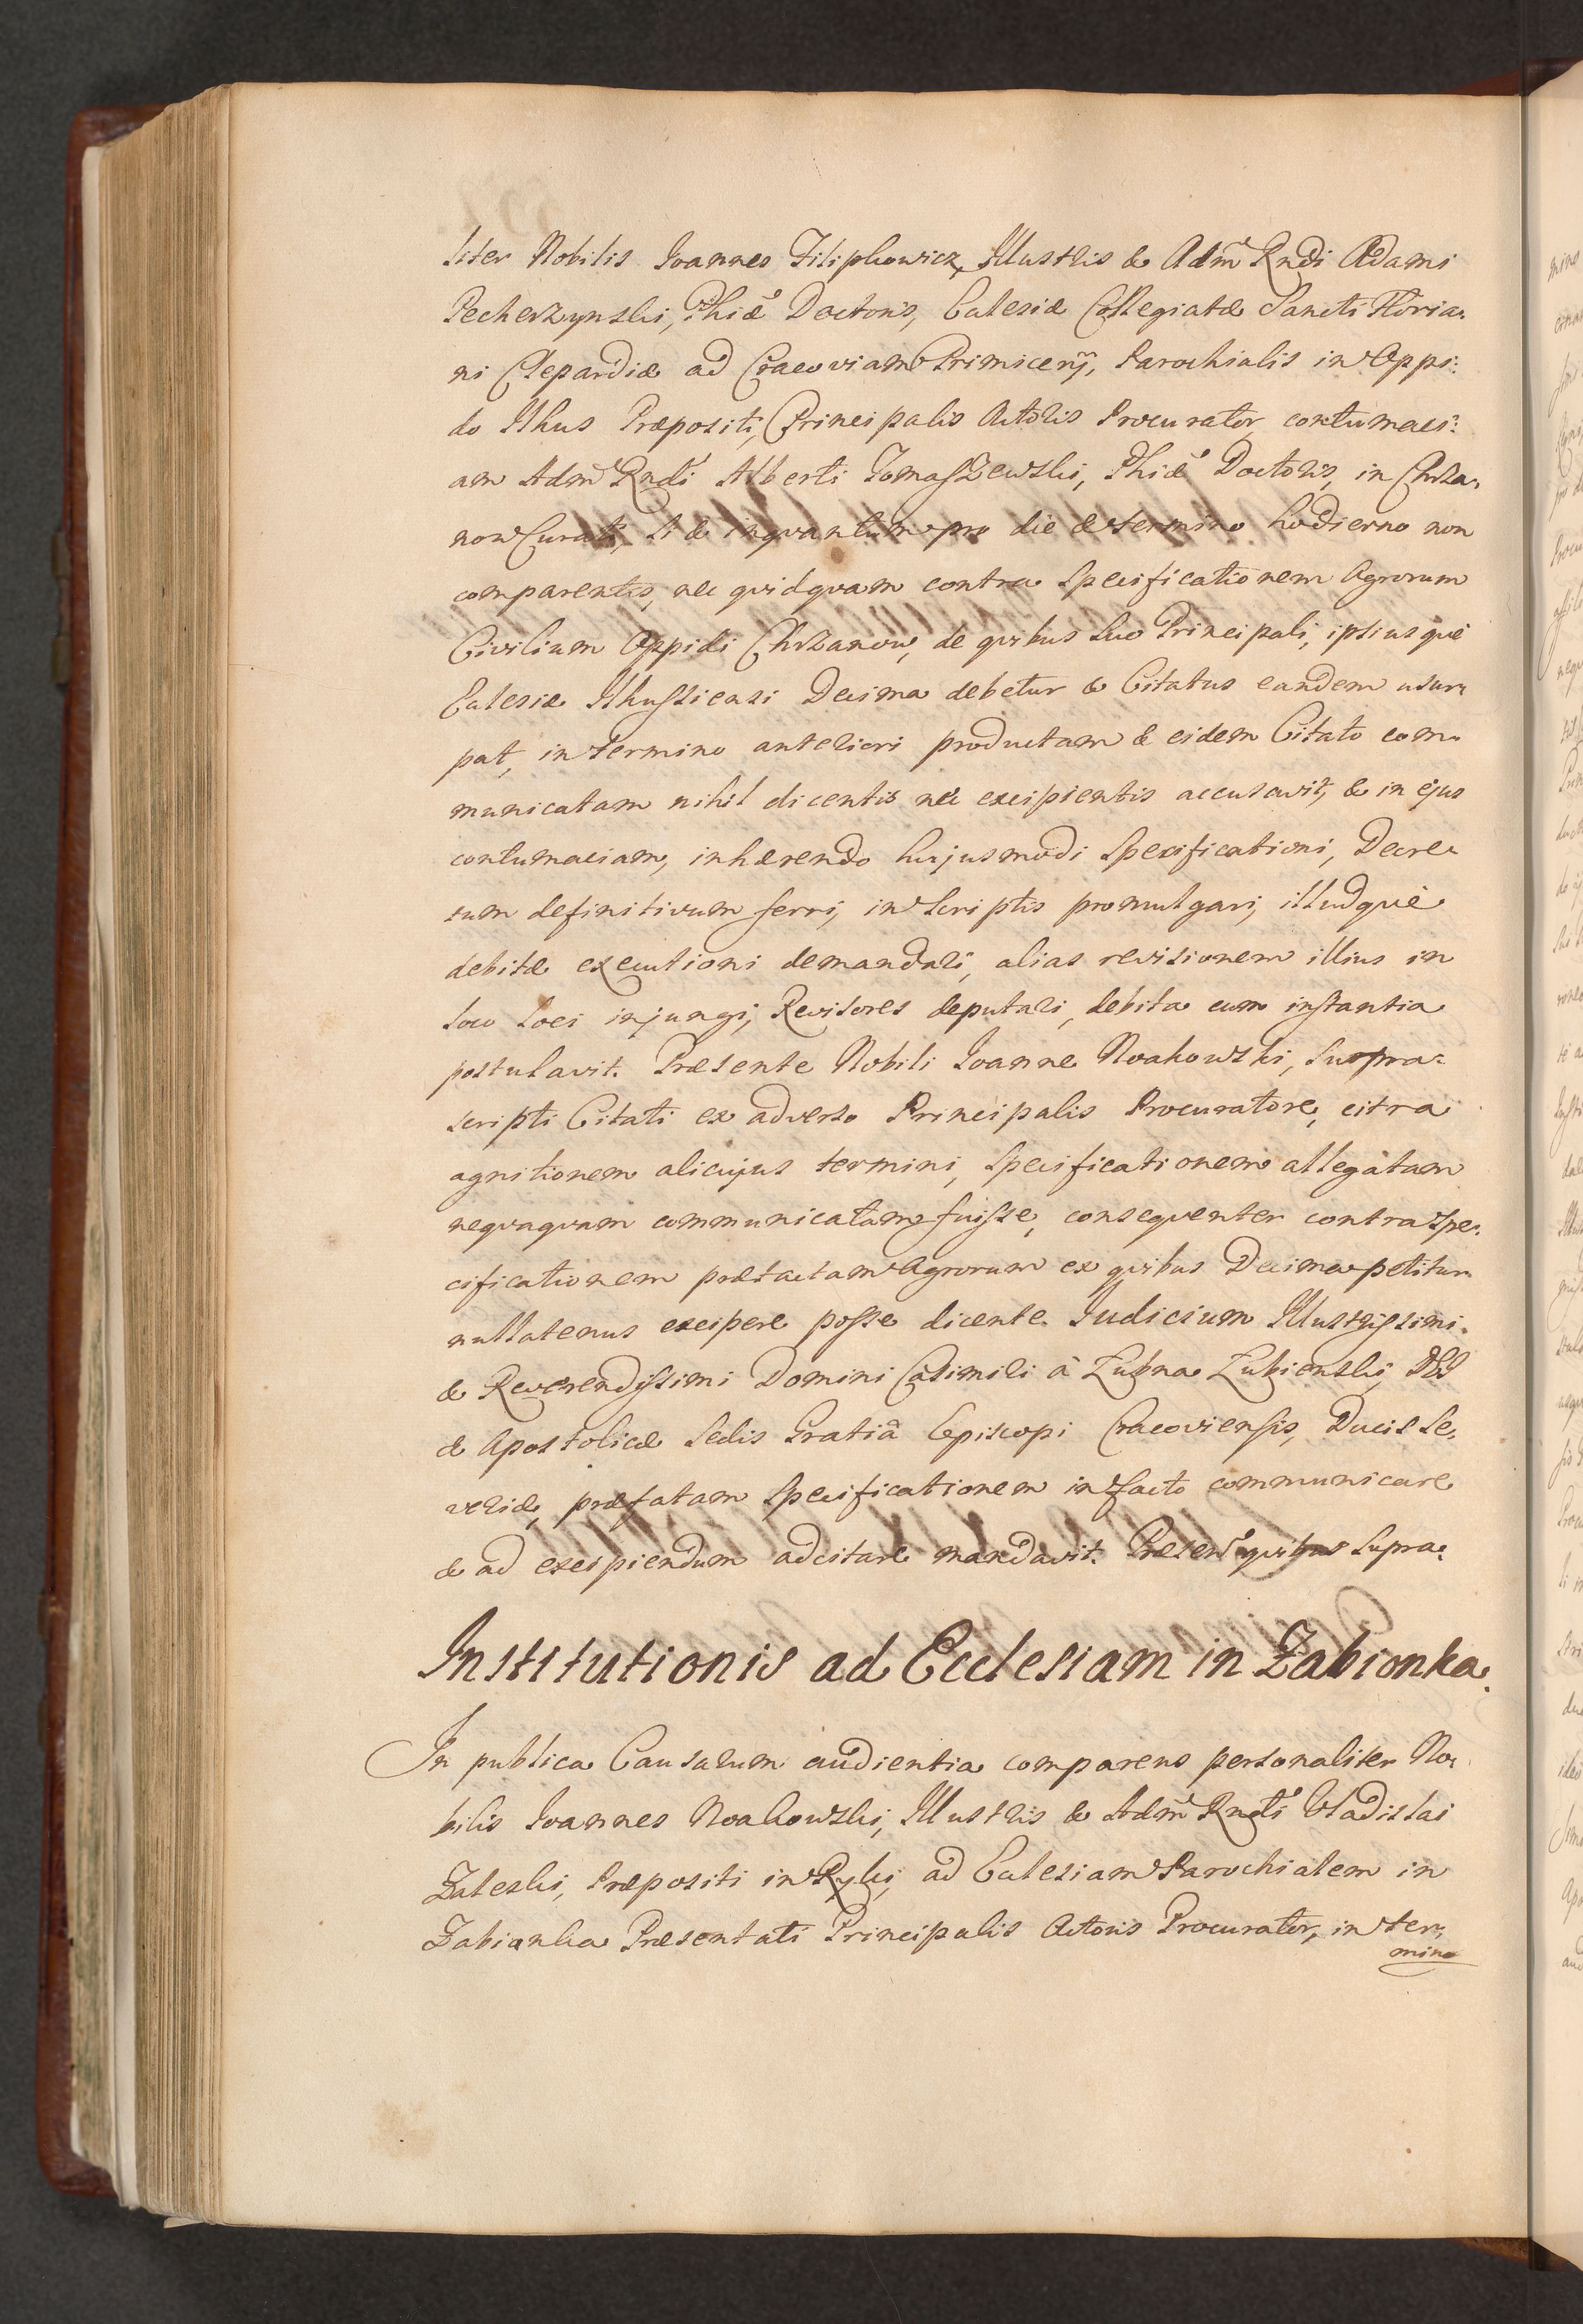 liter Nobilis Joannes Filipkowicz, Illustris & Adm̃ Rndi Adami
Pecherzynski, Phiæ Doctoris, Eclesiæ Collegiatæ Sancti Floria-
ni Clepardiæ ad Cracoviam Primicerij, Parochialis in Oppi-
do Ilkus Præpositi, Principalis Actoris Procurator contumaci-
am Adm̃ Rndi Alberti Tomaszewski, Phiæ Doctoris, in Chrza-
now Curati, si & inqvantum pro die & termino hodierno non
comparentis, nec qvidqvam contra Specificationem Agrorum
Civilium Oppidi Chrzanow, de qvibus suo Principali, ipsiusqvè
Eclesiæ Ilkussiensi Decima debetur & Citatus eandem usur-
pat, in termino anteriori productam & eidem Citato com-
municatam nihil dicentis nec excipientis accusavit, & in ejus
contumaciam, inhærendo hujusmodi Specificationi, Decre-
tum definitivum ferri, in scriptis promulgari, illudqvè
debitæ executioni demandari, alias revisionem illius in
loco loci injungi, Revisores deputari, debita cum instantia
postulavit. Præsente Nobili Joanne Noakowski, supra-
scripti Citati ex adverso Principalis Procuratore, citra
agnitionem alicujus termini, Specificationem allegatam
neqvaqvam communicatam fuisse, conseqventer contra Spe-
cificationem prætactam Agrorum ex qvibus Decima petitur
nullatenus excipere posse dicente. Judicium Illustrissimi
& Reverendissimi Domini Casimiri à Łubna Łubienski, DEI
& Apostolicæ Sedis Gratiâ Episcopi Cracoviensis, Ducis Se-
veriæ, præfatam Specificationem in facto communicare
& ad excipiendum adcitare mandavit. Præsen̄ qvibus supra.
Institutionis ad Ecclesiam in Żabionka.
In publica Causarum audientia comparens personaliter No-
bilis Joannes Noakowski, Illustris & Adm̃ Rndi Vladislai
Zaleski, Præpositi in Ryki, ad Eclesiam Parochialem in
Żabianka Præsentati Principalis Actoris Procurator, in ter-
mino